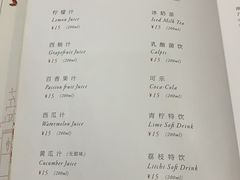 柠檬汁
Lemon Juice
¥15 (200ml)
西柚汁
Grapefruit Juice
¥15 (200ml)
百香果汁
Passion fruit Juice
¥15 (200ml)
西瓜汁
Watermelon Juice
¥15 (200ml)
黄瓜汁 (无甜味)
Cucumber Juice
¥15 (200ml)
冰奶茶
Iced Milk Tea
¥15 (200ml)
乳酸菌饮
Calpis
¥15 (200ml)
可乐
Coca-Cola
¥15 (200ml)
青柠特饮
Lime Soft Drink
¥15 (200ml)
荔枝特饮
Litchi Soft Drink
¥15 (200ml)